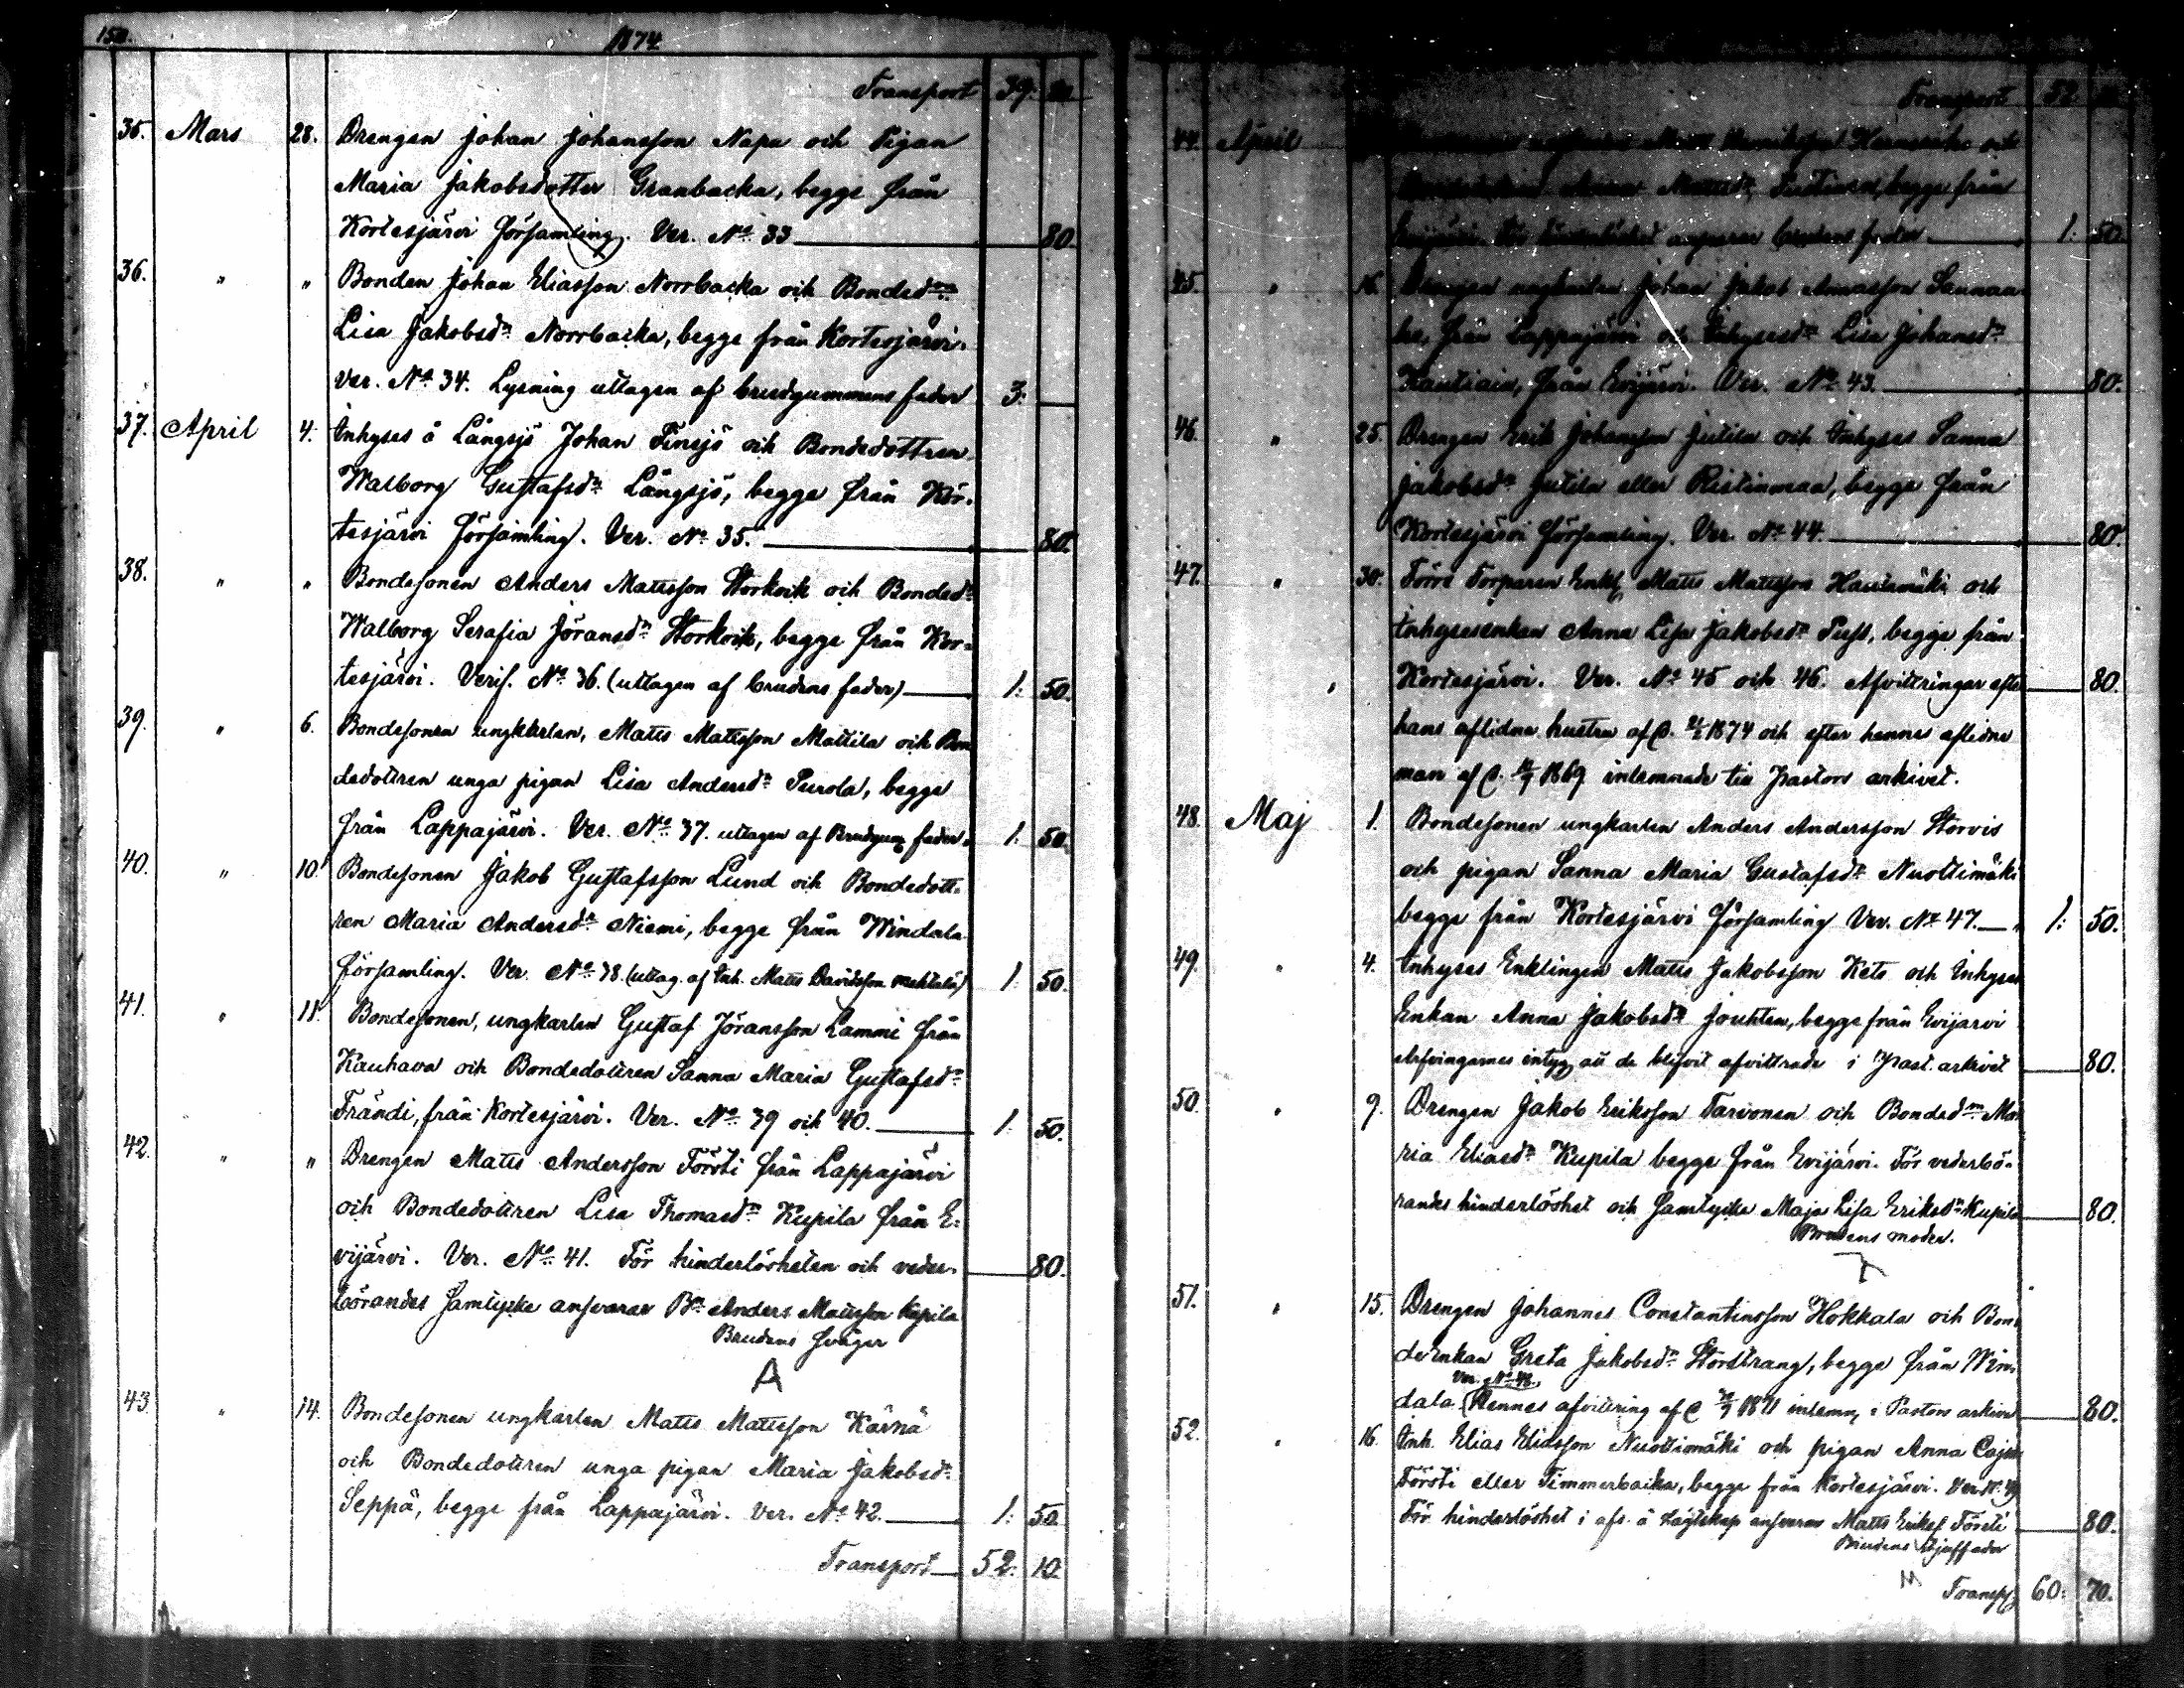 150.
1874.
Transport 39.
35. Mars 28. Drengen Johan Johansson Napa och Pigan
Maria Jakobsdotter Granbacka, begge från
Kortesjärvi församling. Ver. No 33 80.
36. " " Bonden Johan Eliasson Norrbacka och Bonded:n
Lisa Jakobsdr Norrbacka, begge från Kortesjärvi.
Ver. No 34. Lysning uttagen af brudgummens fader 3:
37. April 4. Inhyses å Långsjö Johan Finsjö och Bondedottren
Walborg Gustafsdr Långsjö, begge från Kor-
tesjärvi församling. Ver. No 35. 80.
38. " " Bondesonen Anders Mattsson Storkvik och Bondedr
Walborg Serafia Jöransdr Storkvik, begge från Kor-
tesjärvi. Verif. No 36. (uttagen af brudens fader) 1: 50.
39. " 6. Bondesonen ungkarlen, Matts Mattsson Mattila och Bon
dedottren unga pigan Lisa Andersdr Purola, begge
från Lappajärvi. Ver. No 37. uttagen af Brudgum fader. 1: 50.
40. " 10. Bondesonen Jakob Gustafsson Lund och Bondedott-
ren Maria Andersdr Niemi, begge från Windala
församling. Ver. No 38. (uttag. af Inh. Matts Davidsson Mehtälä) 1: 50.
41. " 11. Bondesonen, ungkarlen Gustaf Jöransson Lammi från
Kauhava och Bondedottren Sanna Maria Gustafsdr
Frändi, från Kortesjärvi. Ver. No 39 och 40. 1. 50.
42. " " Drengen Matts Andersson Försti från Lappajärvi
och Bondedottren Lisa Thomasdr Kupila från E-
vijärvi. Ver. No 41. För hinderlösheten och veder- 80.
börandes samtycke ansvarar Bn Anders Mattsson Kupila
Brudens svåger
A
43. " 14. Bondesonen ungkarlen Matts Mattsson Kärnä
och Bondedottren unga pigan Maria Jakobsdr
Seppä, begge från Lappajärvi. Ver. No 42. 1: 50.
Transport 52. 10.
Transport 52
44. April
begge från
brudens fader 1: 50.
45. " 16. Drengen ungkarlen Johan Jakob Sannaa-
ho, från Lappajärvi och Inhysesdr Lisa Johansdr
Kautiain, från Evijärvi. Ver. No 43. 80.
46. " 25. Drengen Erik Johansson Jutila och Inhyses Sanna
Jakobsdr Jutila eller Ristinmaa, begge från
Kortesjärvi församling. Ver. No 44. 80.
47. " 30. Förre Torparen Enkl. Matts Mattsson Hautamäki och
Inhysesenkan Anna Lisa Jakobsdr Puss, begge från
Kortesjärvi. Ver. No 45 och 46. Afvittringar efter 80.
hans aflidna hustru af d. 1874 och efter hennes aflidne
man af d. 1869 inlemnade till Pastors arkivet.
48. Maj 1. Bondesonen ungkarlen Anders Andersson Storvis
och pigan Sanna Maria Gustafsdr Nuottimäki
begge från Kortesjärvi församling Ver. No 47. 1: 50.
49. " 4. Inhyses Enklingen Matts Jakobsson Keto och Inhyses
Enkan Anna Jakobsdr Jouhten, begge från Evijärvi
Arfvingarnes intyg att de blifvit afvittrade i Past. arkivet 80.
50. " 9. Drengen Jakob Eriksson Tarvonen och Bondedn Ma
ria Eliasdr Kupila begge från Evijärvi. För vederbö-
randes hinderlöshet och samtycke Maja Lisa Eriksdr Kupila 80.
Brudens moder.
51. " 15. Drengen Johannes Constantinsson Hokkala och Bon-
deenkan Greta Jakobsdr Storstrang, begge från Win-
Ver. No 48.
dala. Hennes afvittring af d 1871 inlemn. i Pastors arkivet 80.
52. " 16. Inh. Elias Eliasson Nuottimäki och pigan Anna Cajsa
Försti eller Timmerbacka, begge från Kortesjärvi. Ver. No. 49
För hinderlöshet i afs. å slägtskap ansvarar Matts Eriks. Försti 80.
Brudens styffader
Transp 60: 70.